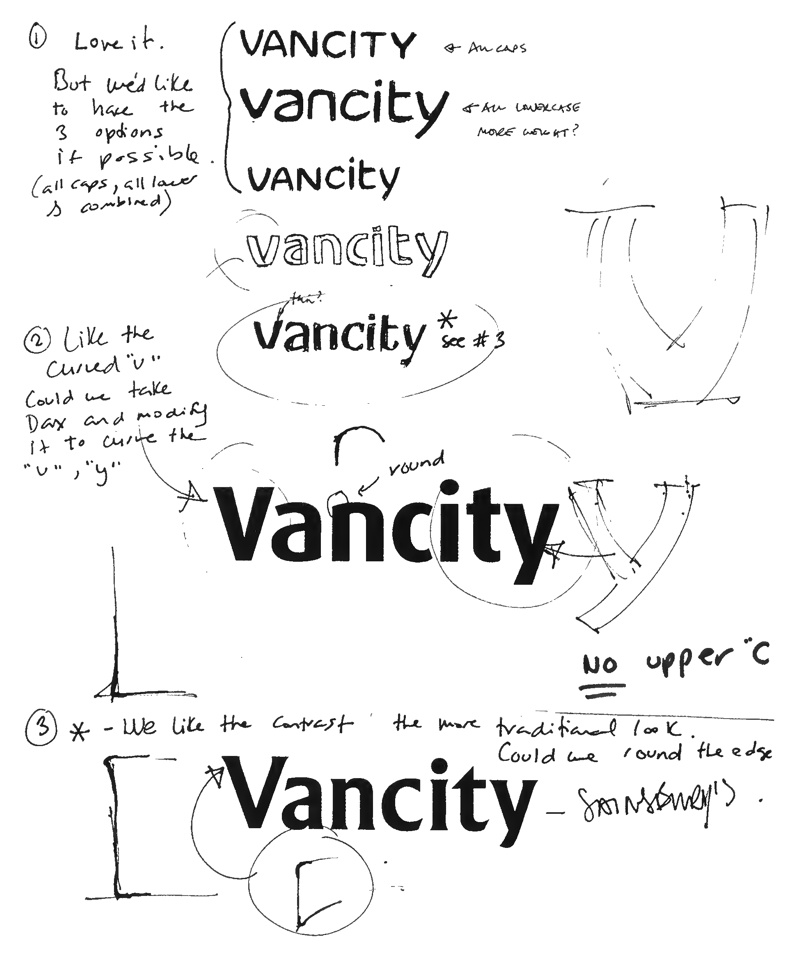 ① Love it.
But we'd like
to have the
3 options
if possible.
(all caps, all lower
& combined)
VANCITY
← ALL CAPS
vancity
← ALL LOWERCASE
MORE WEIGHT?
VANCity
vancity
thin?
vancity *
see #3
② Like the
curved "v"
Could we take
Dax and modify
it to curve the
"v", "y"
round
Vancity
y
NO upper "C
③ * - We like the contrast the more traditional look.
Could we round the edge
Vancity - SAINSBURY'S.